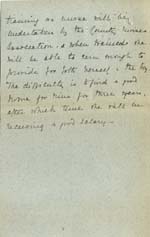 training as nurse will be
undertaken by the County Nurses
Association & when trained she
will be able to earn enough to
provide for both herself & the boy.
The difficulty is to find a good
home for him for three years,
after which time she will be
receiving a good salary.